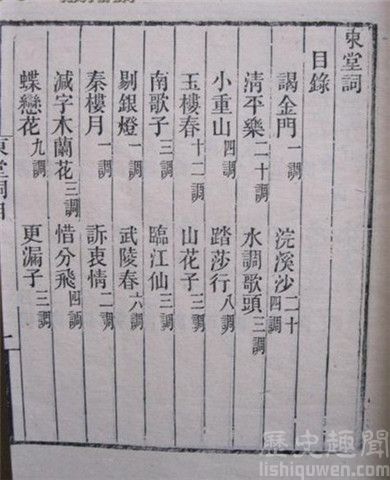 東堂詞
目錄
謁金門一調 浣溪沙二十四調
清平樂二十調 水調歌頭三調
小重山四調 踏莎行八調
玉樓春十二調 山花子三調
南歌子三調 臨江仙三調
剔銀燈一調 武陵春六調
秦樓月一調 訴衷情二調
減字木蘭花三調 惜分飛四調
蝶戀花九調 更漏子三調
東堂詞目 一
歷史趣聞
lishiquwen.com